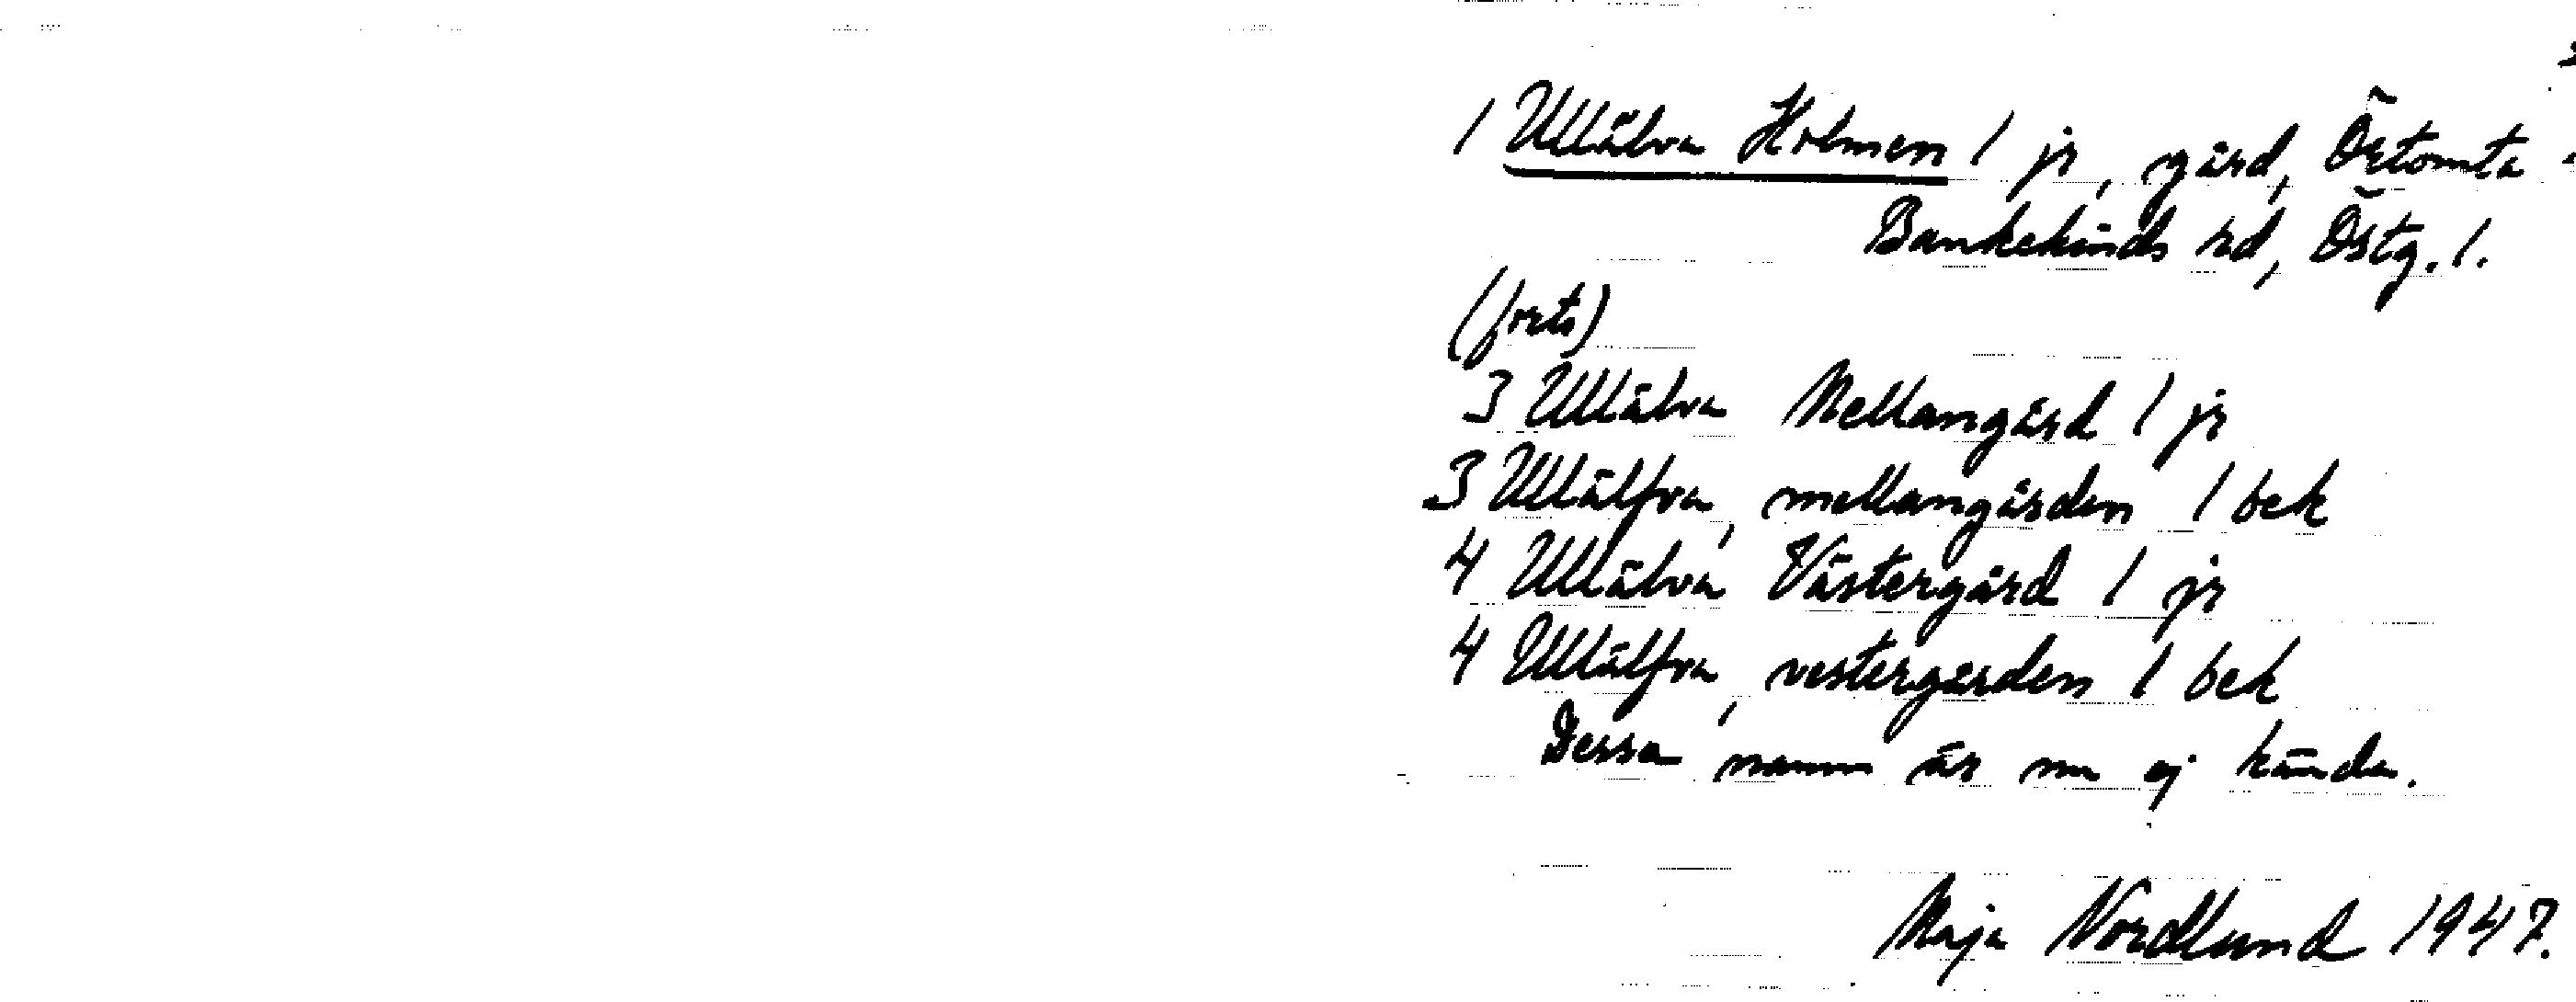 1 Ullälva Holmen 1 jr, gård, Örtomta
Bankekinds hd, Östg. l.
(forts)
3 Ullälva Mellangård 1 jr
3 Ullälfva, mellangården 1 bek
4 Ullälva Västergård 1 jr
4 Ullälfva, vestergården 1 bek
Dessa namn är nu ej kända.
Maja Nordlund 1947.